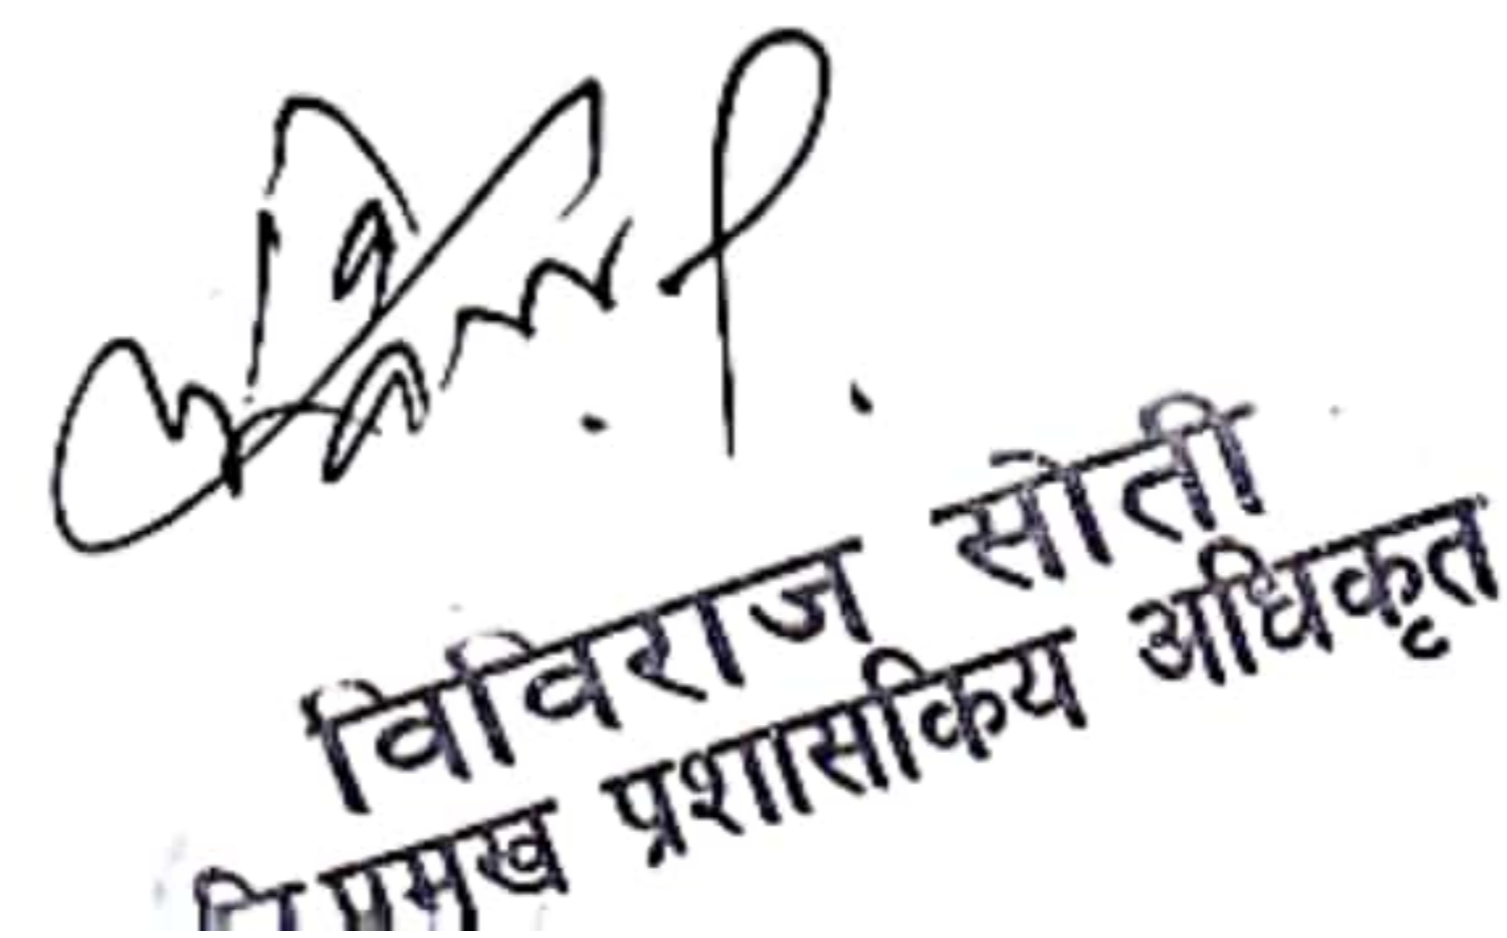 विविराज सोती
नि.प्रमुख प्रशासकिय अधिकृत